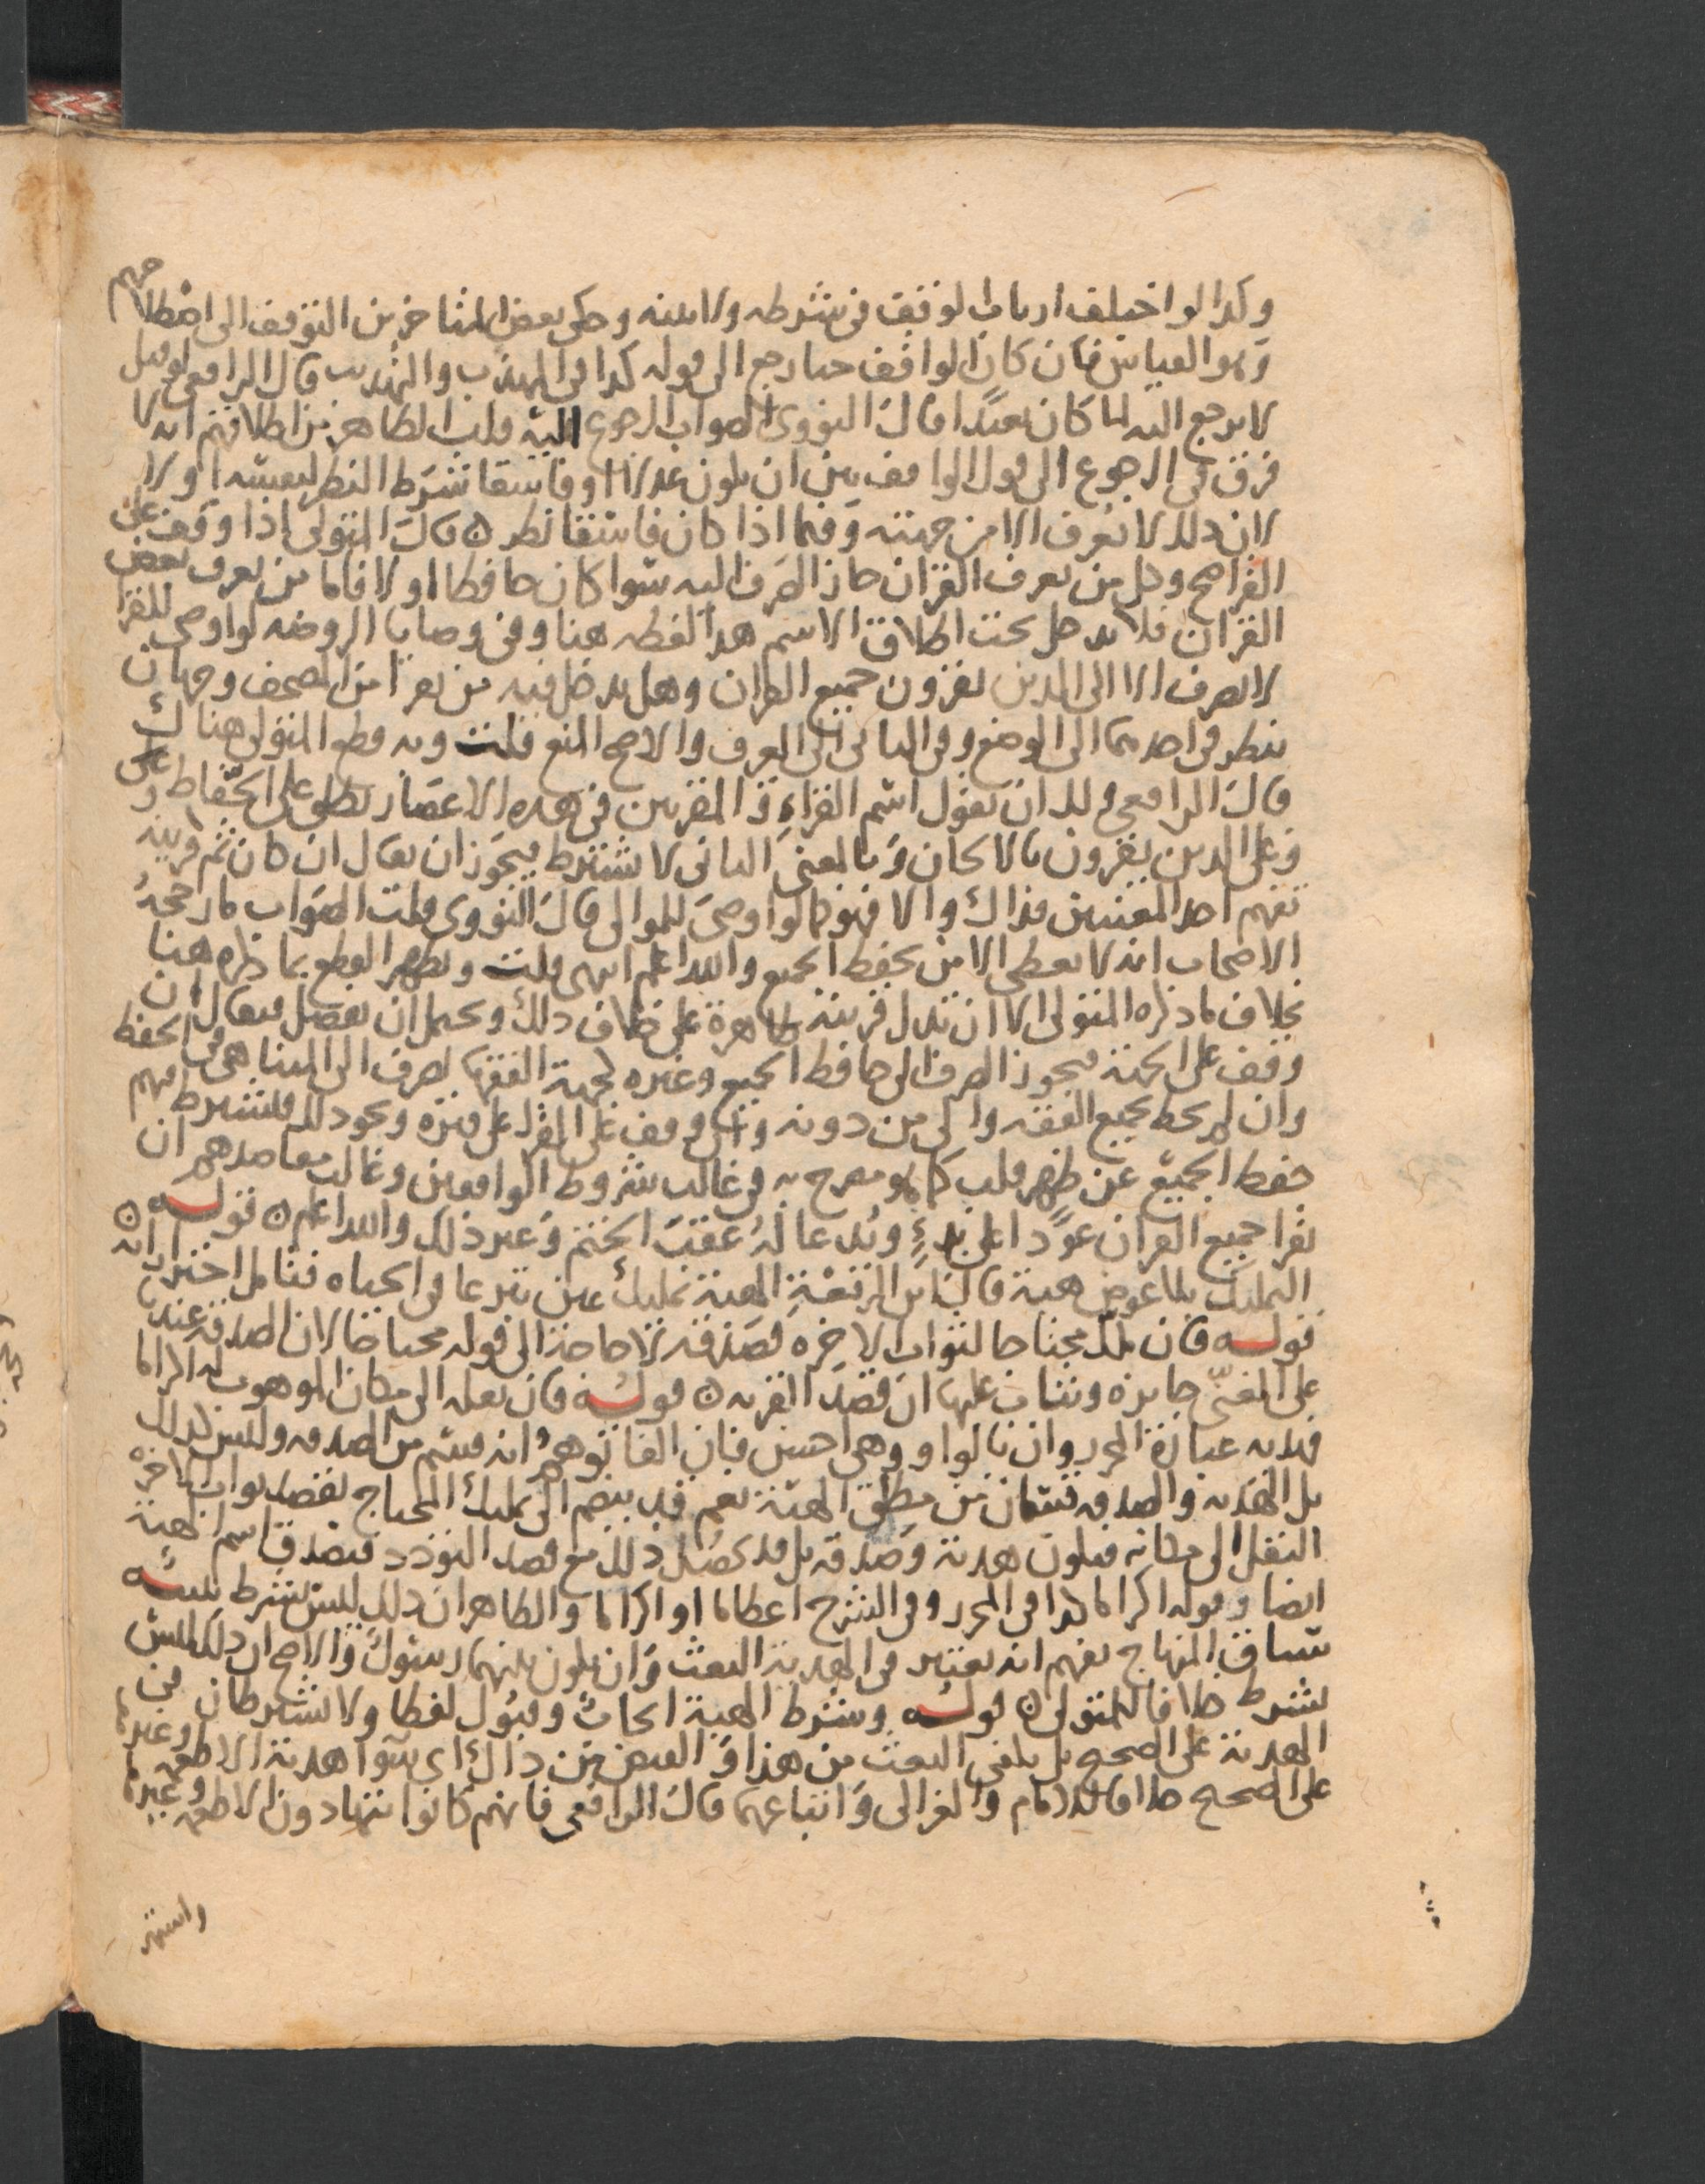 وكذا لو اختلف ارباب الوقف في شرطه ولا بينة وحكى بعض المتاخرين التوقف الى اصطلاحهم
وهو القياس فان كان الواقف حيا رجع الى قوله كذا في المهذب والتهذيب قال الرافعي لو قيل
لا يرجع اليه لما كان بعيدا قال النووي الصواب الرجوع اليه قلت الظاهر من اطلاقهم انه لا
فرق في الرجوع الى قول الواقف بين ان يكون عدلا او فاسقا شرط النظر لنفسه او لا
لان ذلك لا يعرف الا من جهته وفيما اذا كان فاسقا نظر ه قال المتولي اذا وقف على
القرا صح وكل من يعرف القران جاز الصرف اليه سوا كان حافظا او لا فاما من يعرف بعض
القران فلا يدخل تحت اطلاق الاسم هذا لفظه هنا وفي وصايا الروضه لو اوصى للقرا
لا يصرف الا الى الذين يقرون جميع القران وهل يدخل فيه من يقرا من المصحف وجهان
ينظر في احدهما الى الوضع وفي الثاني الى العرف والاصح المنع قلت وبه قطع المتولي هناك
قال الرافعي ولك ان تقول اسم القراء والمقريين في هذه الاعصار يطلق على الحفاظ
وعلى الذين يقرون بالالحان وبالمعنى الثاني لا يشترط فيجوز ان يقال ان كان ثم قرينة
تفهم احد المعنيين فذاك والا فهو كما لو اوصى للموالي قال النووي قلت الصواب ما رجحه
الاصحاب انه لا يعطى الا من يحفظ الجميع والله اعلم انتهى قلت ويظهر القطع بما ذكره هنا
بخلاف ما ذكره المتولي الا ان تدل قرينة ظاهرة على خلاف ذلك ويحتمل ان يفصل فيقال ان
وقف على الجهة فيجوز الصرف الى حافظ الجميع وغيره كجهة الفقها يصرف الى المتناهي في الحفظ
وان لم يحط بجميع الفقه والى من دونه وان وقف على القرا على قبره ونحو ذلك فيشترط فيهم
حفظ الجميع عن ظهر قلب كما هو مصرح به في غالب شروط الواقفين وغالب مقاصدهم ان
يقرا جميع القران عودا على بدء ويدعا له عقب الختم وغير ذلك والله اعلم ه قوله
التمليك بلا عوض هبة قال ابن الرفعة الهبة تمليك عين تبرعا في الحياه فتامل احترازاته ه
قوله فان ملك محتاجا لثواب الاخره فصدقه لا حاجة الى قوله محتاجا لان الصدقه عندنا
على الغني جايزه ويثاب عليها ان قصد القربه ه قوله فان نقله الى مكان الموهوب له اكراما
فهديه عبارة المحرر وان بالواو وهي احسن فان الفا توهم انه قسم من الصدقه وليس كذلك
بل الهديه والصدقه قسمان من مطلق الهبة نعم قد ينضم الى تمليك المحتاج بقصد ثواب الاخره
النقل الى مكانه فيكون هدية وصدقه بل قد يحصل ذلك مع قصد التودد فيصدق اسم الهبة
ايضا وقوله اكراما كذا في المحرر وفي الشرح اعظاما او اكراما والظاهر ان ذلك ليس بشرط تنبيه
سياق المنهاج يفهم انه يعتبر في الهدية البعث وان يكون بينهما رسول والاصح ان ذلك ليس
بشرط خلافا للمتولي ه قوله وشرط الهبة ايجاب وقبول لفظا ولا يشترطان في
الهدية على الصحيح بل يكفي البعث من هذا والقبض من ذاك اي سوا هدية الاطعمه وغيرها
على الصحيح خلافا للامام والغزالي واتباعهما قال الرافعي فانهم كانوا يتهادون الاطعمه وغيرها
واشتهر